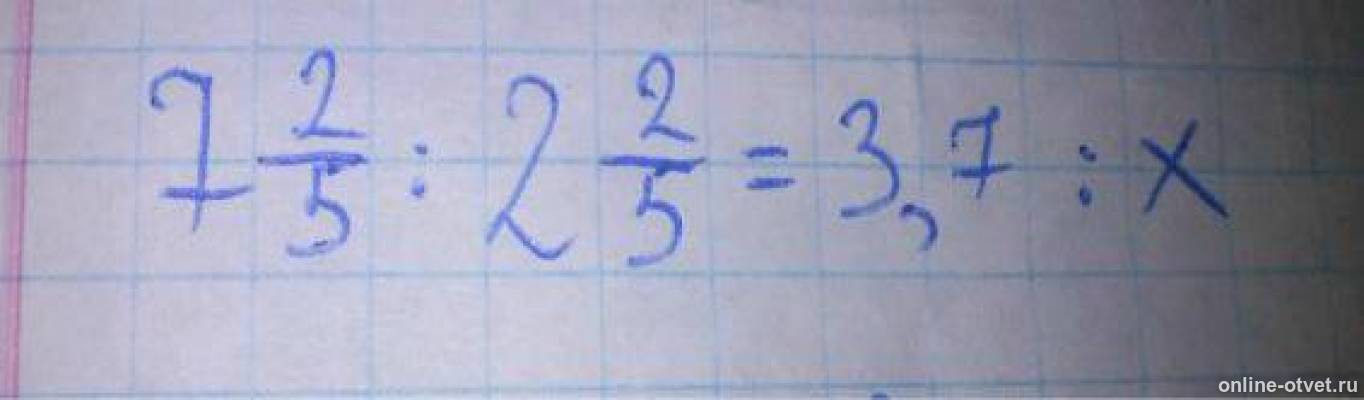 7 2/5 : 2 2/5 = 3,7 : x
online-otvet.ru